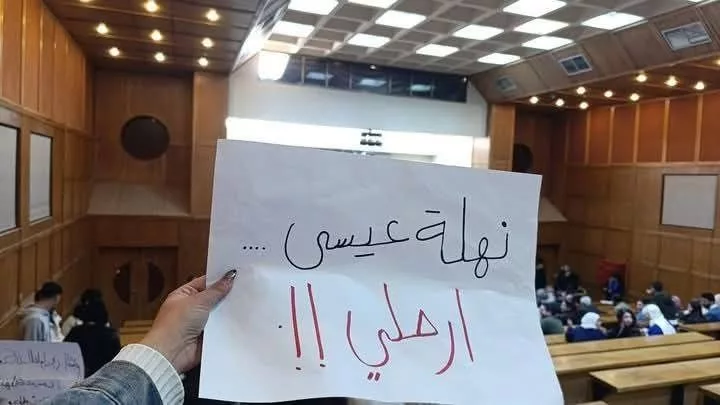 نهلة عيسى ....
ارحلي !!